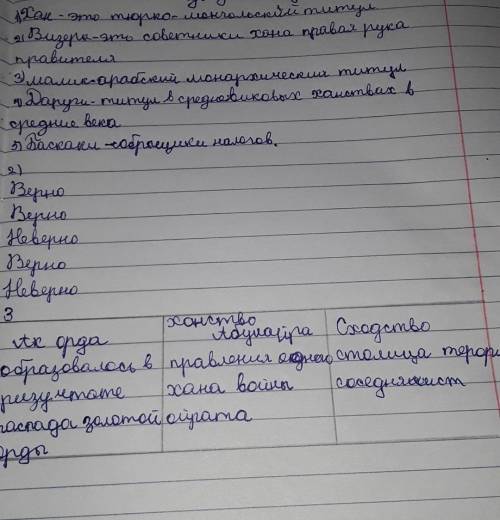 1) Хан - это тюрко-монгольский титул
2) Визери-это советники хана правая рука
правителя
3) малик-арабский монархический титул
4) Даруги-титул в средновиковых ханствах в
средние века
5) Баскаки-сборощики налогов.
2)
Верно
Верно
Неверно
Верно
Неверно
3
Ак орда
ханство Абулайра
Сходство
образовалось в
правления одного
столица
ризултате
хана войны
распада золотой
ойрата
орды